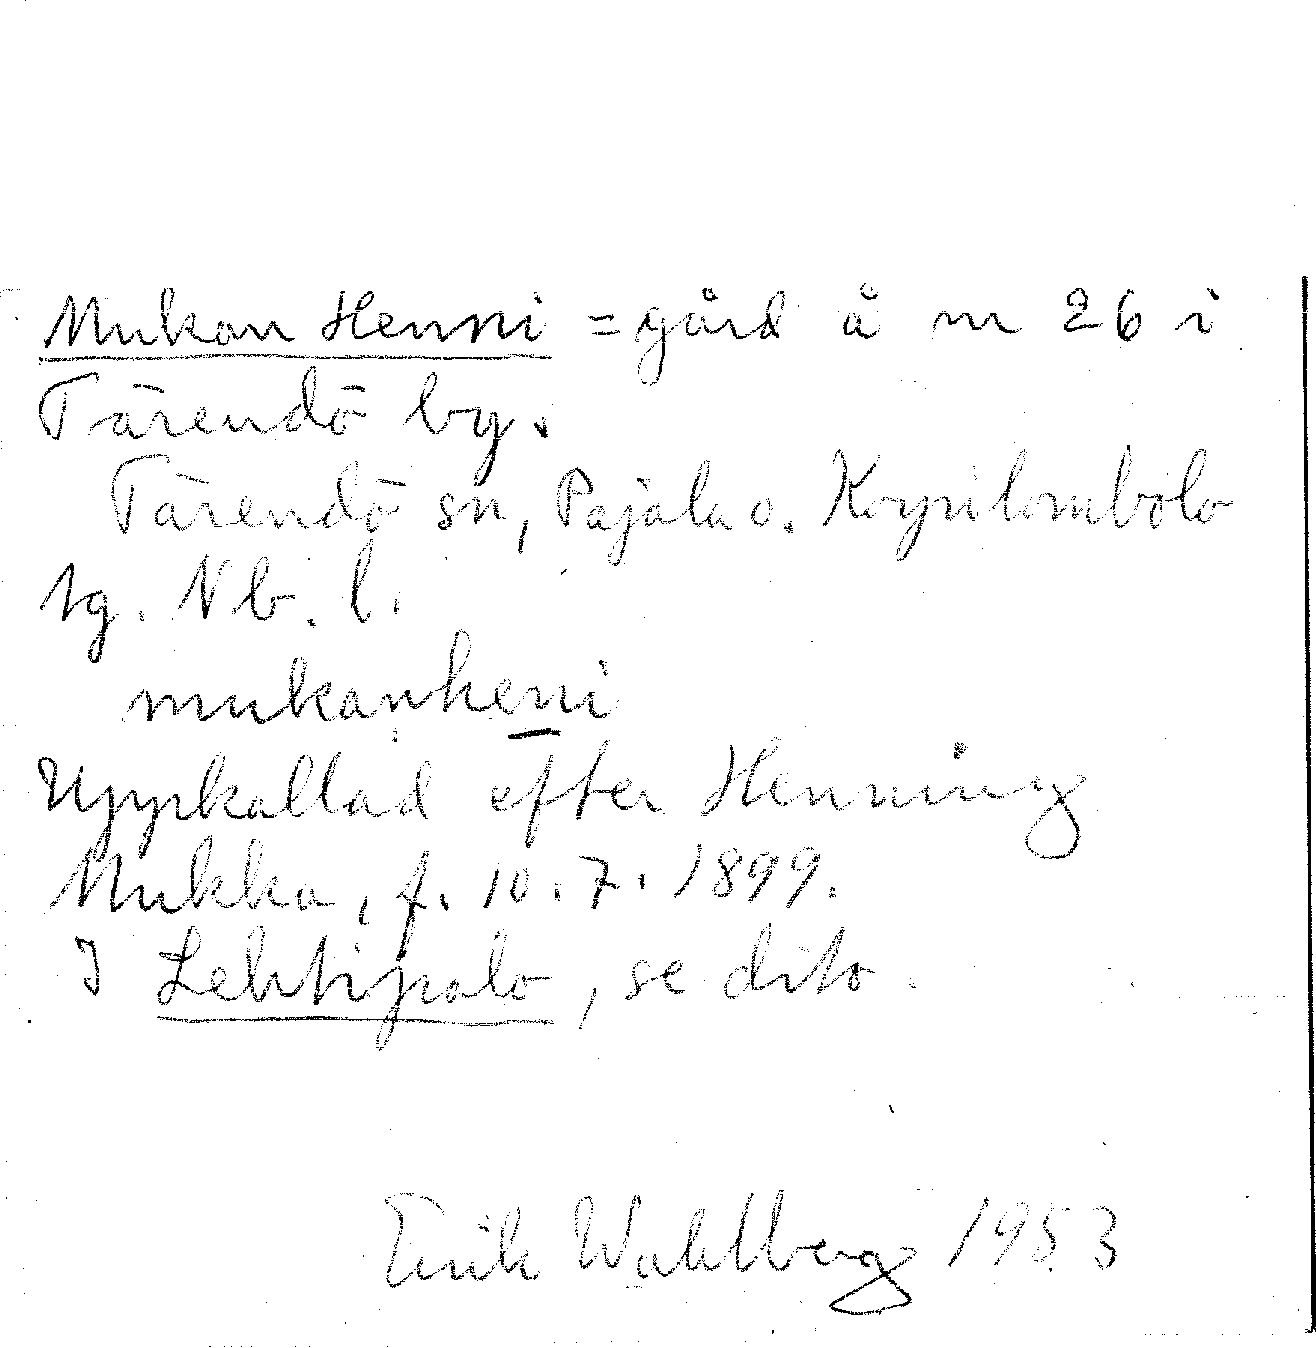 Mukan Henni = gård å nr 26 i
Tärendö by.
Tärendö sn, Pajala o. Korpilombolo
tg. Nb. l.
mukanheni
Uppkallad efter Henning
Mukka, f. 10.7.1899.
I Lehtipalo, se dito.
Erik Wahlberg 1953